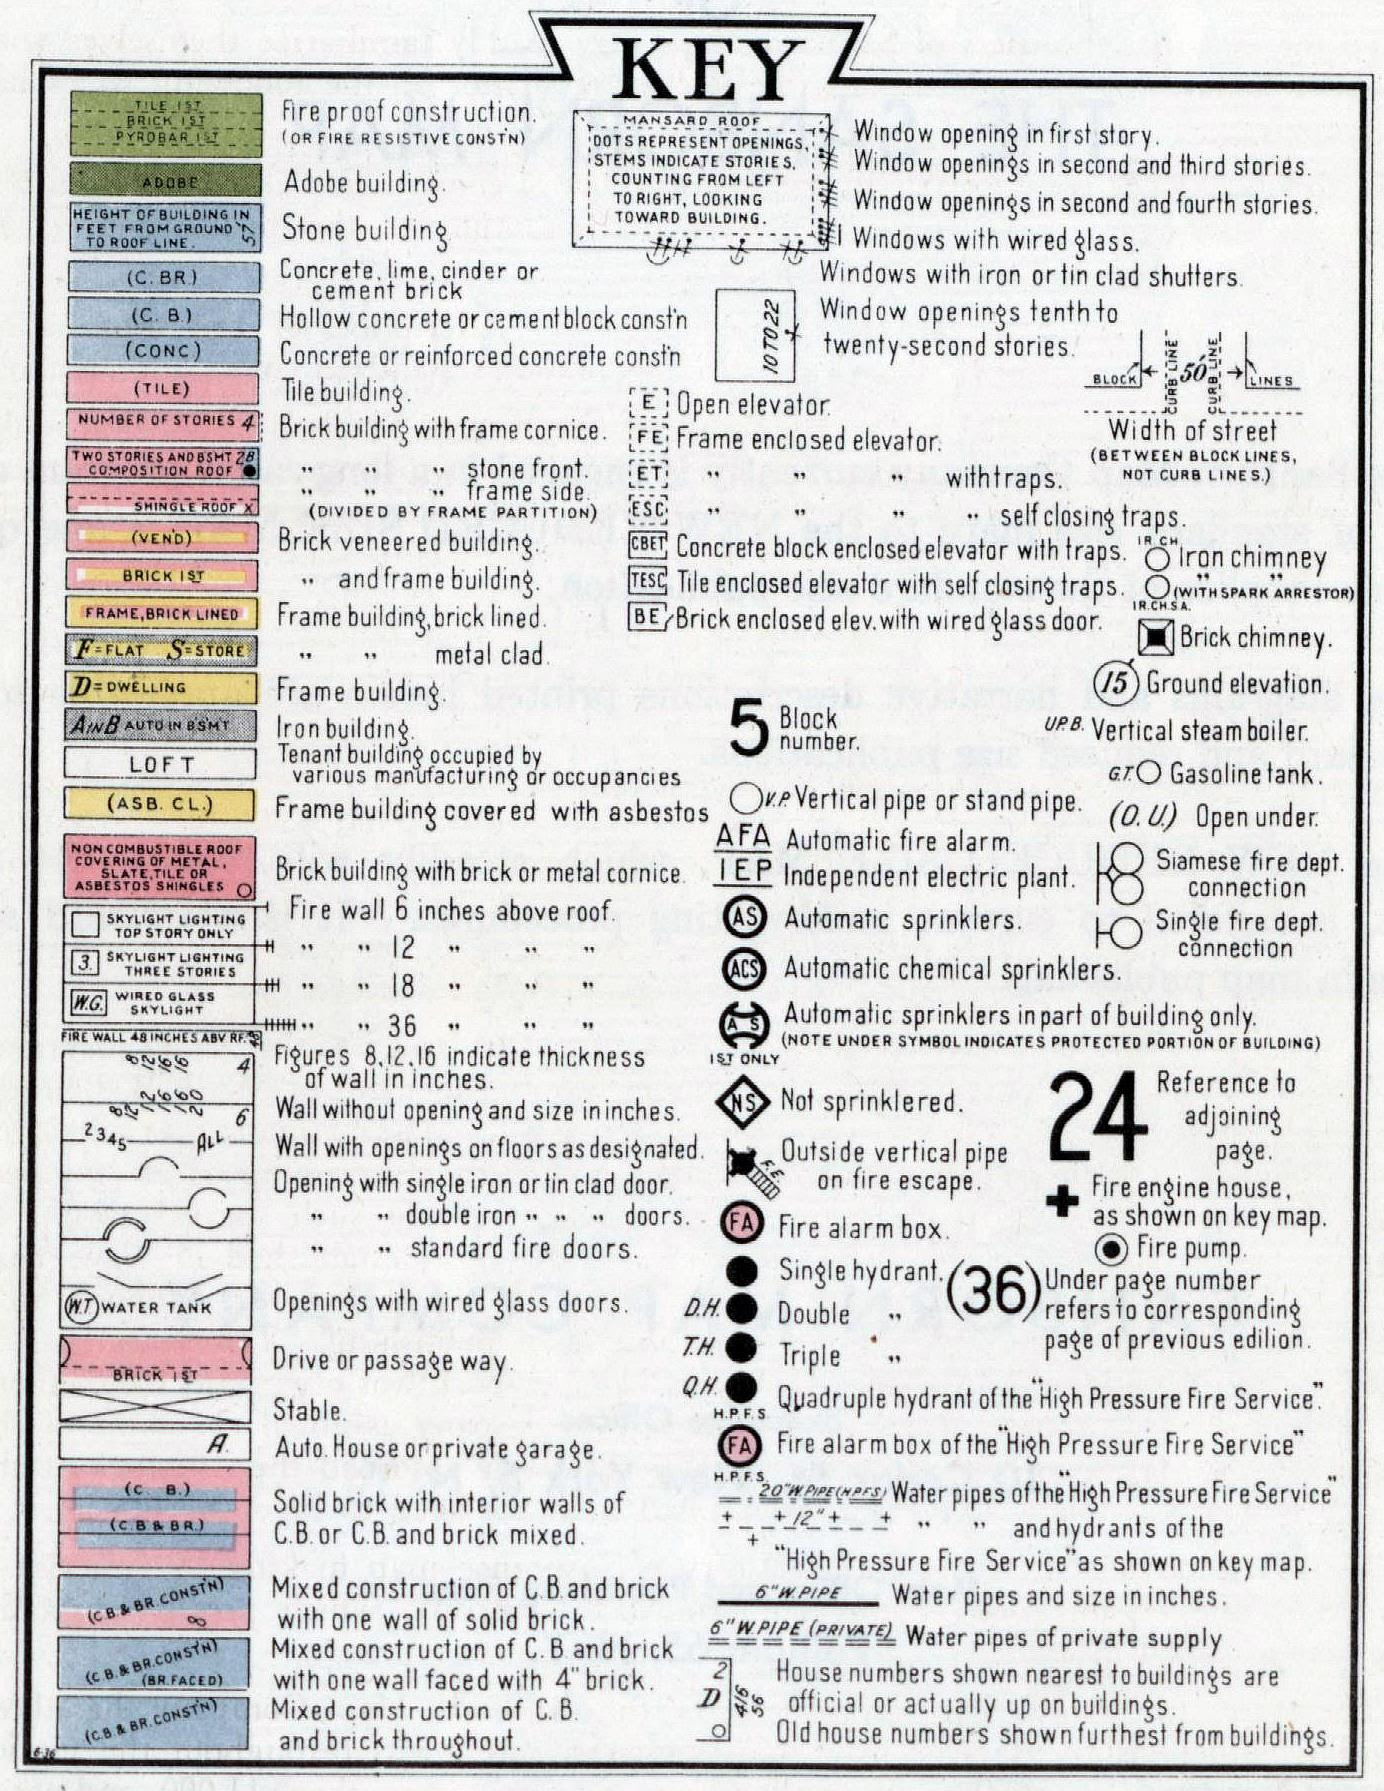 KEY
TILE 1ST
BRICK 1ST
PYROBAR 1ST
Fire proof construction.
(OR FIRE RESISTIVE CONST'N)
ADOBE
Adobe building.
HEIGHT OF BUILDING IN
FEET FROM GROUND
TO ROOF LINE.
57
Stone building
(C. BR.)
Concrete, lime, cinder or
cement brick
(C. B.)
Hollow concrete or cement block const'n
(CONC)
Concrete or reinforced concrete const'n
(TILE)
Tile building.
NUMBER OF STORIES 4
Brick building with frame cornice.
TWO STORIES AND BSMT 2B
COMPOSITION ROOF
" " " stone front.
SHINGLE ROOF X
" " " frame side.
(DIVIDED BY FRAME PARTITION)
(VEN'D)
Brick veneered building.
BRICK 1ST
" and frame building.
FRAME, BRICK LINED
Frame building, brick lined.
F=FLAT S=STORE
" " metal clad.
D=DWELLING
Frame building.
A IN B AUTO IN B'SM'T
Iron building.
LOFT
Tenant building occupied by
various manufacturing or occupancies
(ASB. CL.)
Frame building covered with asbestos
NON COMBUSTIBLE ROOF
COVERING OF METAL,
SLATE, TILE OR
ASBESTOS SHINGLES
Brick building with brick or metal cornice.
SKYLIGHT LIGHTING
TOP STORY ONLY
Fire wall 6 inches above roof.
" " 12 " " "
3.
SKYLIGHT LIGHTING
THREE STORIES
" " 18 " " "
W.G.
WIRED GLASS
SKYLIGHT
" " 36 " " "
FIRE WALL 48 INCHES ABV RF.
8 12 16 16
4
Figures 8, 12, 16 indicate thickness
of wall in inches.
8
12 12
16 16
20
6
Wall without opening and size in inches.
2 3 4 5
ALL
Wall with openings on floors as designated.
Opening with single iron or tin clad door.
" " double iron " " " doors.
" " standard fire doors.
W.T
WATER TANK
Openings with wired glass doors.
BRICK 1ST
Drive or passage way.
Stable.
A.
Auto. House or private garage.
(C. B.)
(C.B & BR.)
Solid brick with interior walls of
C.B. or C.B. and brick mixed.
(C.B. & BR. CONST'N)
8
Mixed construction of C.B. and brick
with one wall of solid brick.
(C.B. & BR. CONST'N)
(BR. FACED)
Mixed construction of C.B. and brick
with one wall faced with 4" brick.
(C.B. & BR. CONST'N)
Mixed construction of C. B.
and brick throughout.
6-36
MANSARD ROOF
DOTS REPRESENT OPENINGS,
STEMS INDICATE STORIES,
COUNTING FROM LEFT
TO RIGHT, LOOKING
TOWARD BUILDING.
Window opening in first story.
Window openings in second and third stories.
Window openings in second and fourth stories.
Windows with wired glass.
Windows with iron or tin clad shutters.
10 TO 22
Window openings tenth to
twenty-second stories.
BLOCK
CURB LINE
50'
CURB LINE
LINES
Width of street
(BETWEEN BLOCK LINES,
NOT CURB LINES.)
E
Open elevator.
FE
Frame enclosed elevator.
ET
" " " with traps.
ESC
" " " " self closing traps.
CBET
Concrete block enclosed elevator with traps.
TESC
Tile enclosed elevator with self closing traps.
BE
Brick enclosed elev. with wired glass door.
IR. CH.
Iron chimney
(WITH SPARK ARRESTOR)
IR. CH. S.A.
Brick chimney.
15
Ground elevation.
5
Block
number.
U.P.B.
Vertical steam boiler.
G.T.
Gasoline tank.
V.P.
Vertical pipe or stand pipe.
(O. U.)
Open under.
AFA
Automatic fire alarm.
IEP
Independent electric plant.
Siamese fire dept.
connection
AS
Automatic sprinklers.
Single fire dept.
connection
ACS
Automatic chemical sprinklers.
A S
1ST ONLY
Automatic sprinklers in part of building only.
(NOTE UNDER SYMBOL INDICATES PROTECTED PORTION OF BUILDING)
NS
Not sprinklered.
24
Reference to
adjoining
page.
F.E.
Outside vertical pipe
on fire escape.
Fire engine house,
as shown on key map.
FA
Fire alarm box.
Fire pump.
Single hydrant.
(36)
Under page number
refers to corresponding
page of previous edilion.
D.H.
Double "
T.H.
Triple "
Q.H.
H.P.F.S.
Quadruple hydrant of the "High Pressure Fire Service".
FA
H.P.F.S.
Fire alarm box of the "High Pressure Fire Service"
20" W. PIPE (H.P.F.S)
Water pipes of the "High Pressure Fire Service"
12"
" " and hydrants of the
"High Pressure Fire Service" as shown on key map.
6" W. PIPE
Water pipes and size in inches.
6" W. PIPE (PRIVATE)
Water pipes of private supply
2
D
O
416
56
House numbers shown nearest to buildings are
official or actually up on buildings.
Old house numbers shown furthest from buildings.